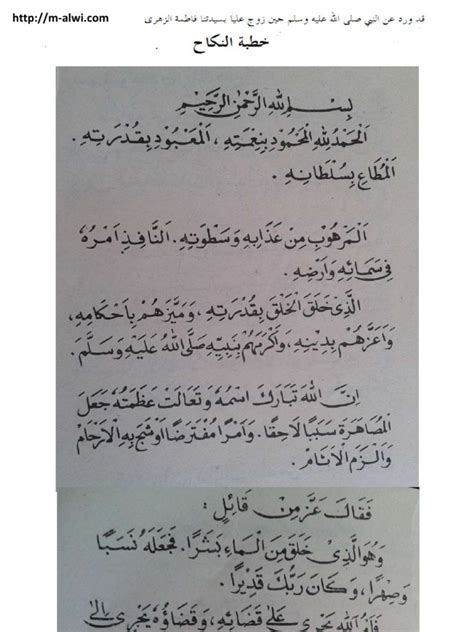 http://m-alwi.com
قد ورد عن النبي صلى الله عليه وسلم حين زوج عليا بسيدتنا فاطمة الزهرى
خطبة النكاح
بِسْمِ اللهِ الرَّحْمٰنِ الرَّحِيْمِ
اَلْحَمْدُ لِلّٰهِ الْمَحْمُوْدِ بِنِعْمَتِهِ ، اَلْمَعْبُوْدِ بِقُدْرَتِهِ .
اَلْمُطَاعِ بِسُلْطَانِهِ .
اَلْمَرْهُوْبِ مِنْ عَذَابِهِ وَسَطْوَتِهِ . اَلنَّافِذِ اَمْرُهُ
فِىْ سَمَائِهِ وَاَرْضِهِ .
الَّذِىْ خَلَقَ الْخَلْقَ بِقُدْرَتِهِ ، وَمَيَّزَهُمْ بِاَحْكَامِهِ ،
وَاَعَزَّهُمْ بِدِيْنِهِ ، وَاَكْرَمَهُمْ بِنَبِيِّهِ صَلَّى اللهُ عَلَيْهِ وَسَلَّمَ .
اِنَّ اللهَ تَبَارَكَ اسْمُهُ وَتَعَالَتْ عَظَمَتُهُ جَعَلَ
الْمُصَاهَرَةَ سَبَبًا لَاحِقًا . وَاَمْرًا مُفْتَرَضًا اَوْشَجَ بِهِ الْاَرْحَامَ
وَاَلْزَمَ الْاَنَامَ .
فَقَالَ عَزَّ مِنْ قَائِلٍ :
وَهُوَ الَّذِىْ خَلَقَ مِنَ الْمَاءِ بَشَرًا . فَجَعَلَهُ نَسَبًا
وَصِهْرًا ، وَكَانَ رَبُّكَ قَدِيْرًا .
فَاَمْرُ اللهِ يَجْرِىْ عَلٰى قَضَائِهِ ، وَقَضَاؤُهُ يَجْرِىْ اِلٰى